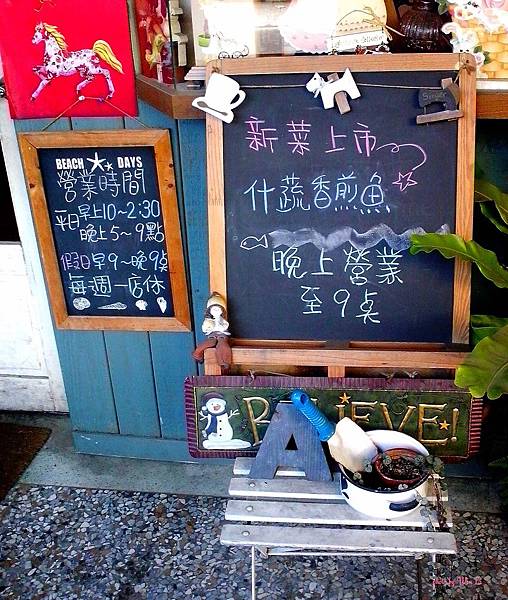 BEACH DAYS
營業時間
平日早上10~2:30
晚上5~9點
假日早9~晚9點
每週一店休
新菜上市
什蔬香煎魚
晚上營業
至9点
BELIEVE!
A